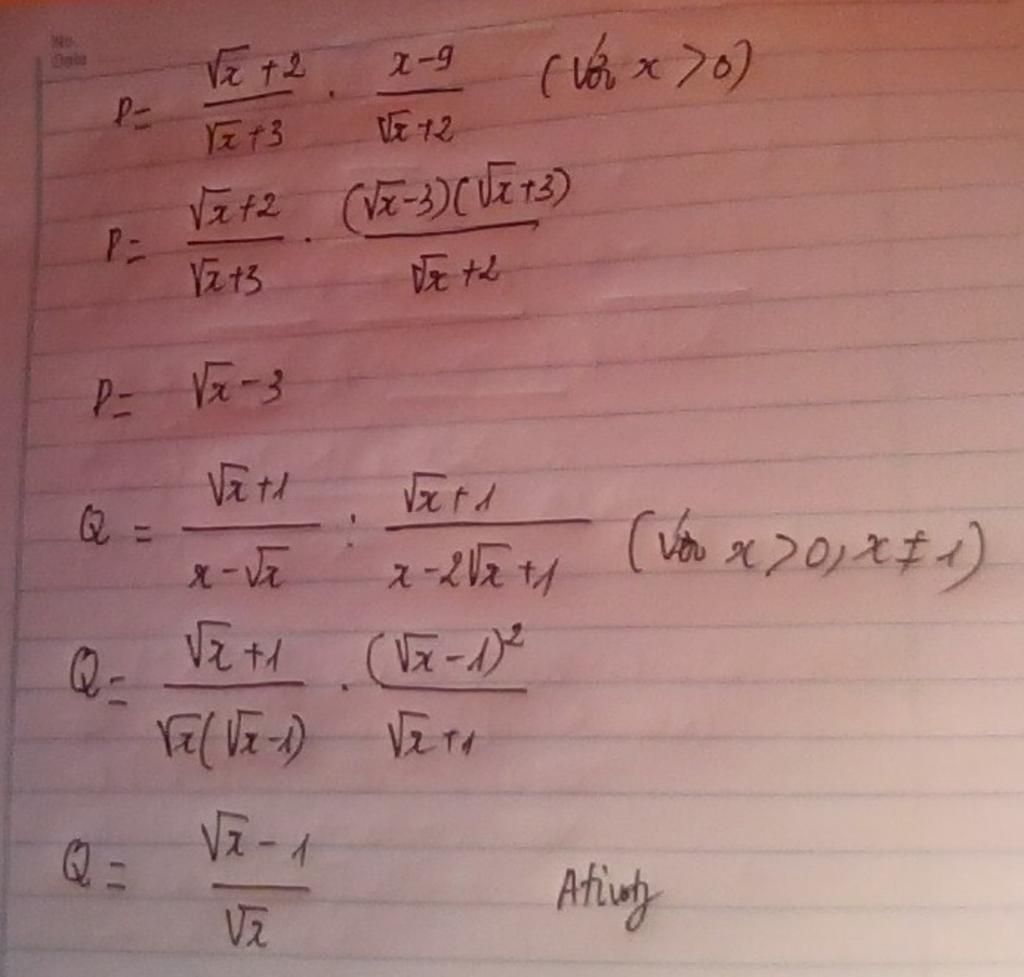 No.
Date
P = (√x + 2)/(√x + 3) . (x - 9)/(√x + 2) (Với x > 0)
P = (√x + 2)/(√x + 3) . ((√x - 3)(√x + 3))/(√x + 2)
P = √x - 3
Q = (√x + 1)/(x - √x) : (√x + 1)/(x - 2√x + 1) (Với x > 0, x ≠ 1)
Q = (√x + 1)/(√x(√x - 1)) . (√x - 1)²/(√x + 1)
Q = (√x - 1)/√x